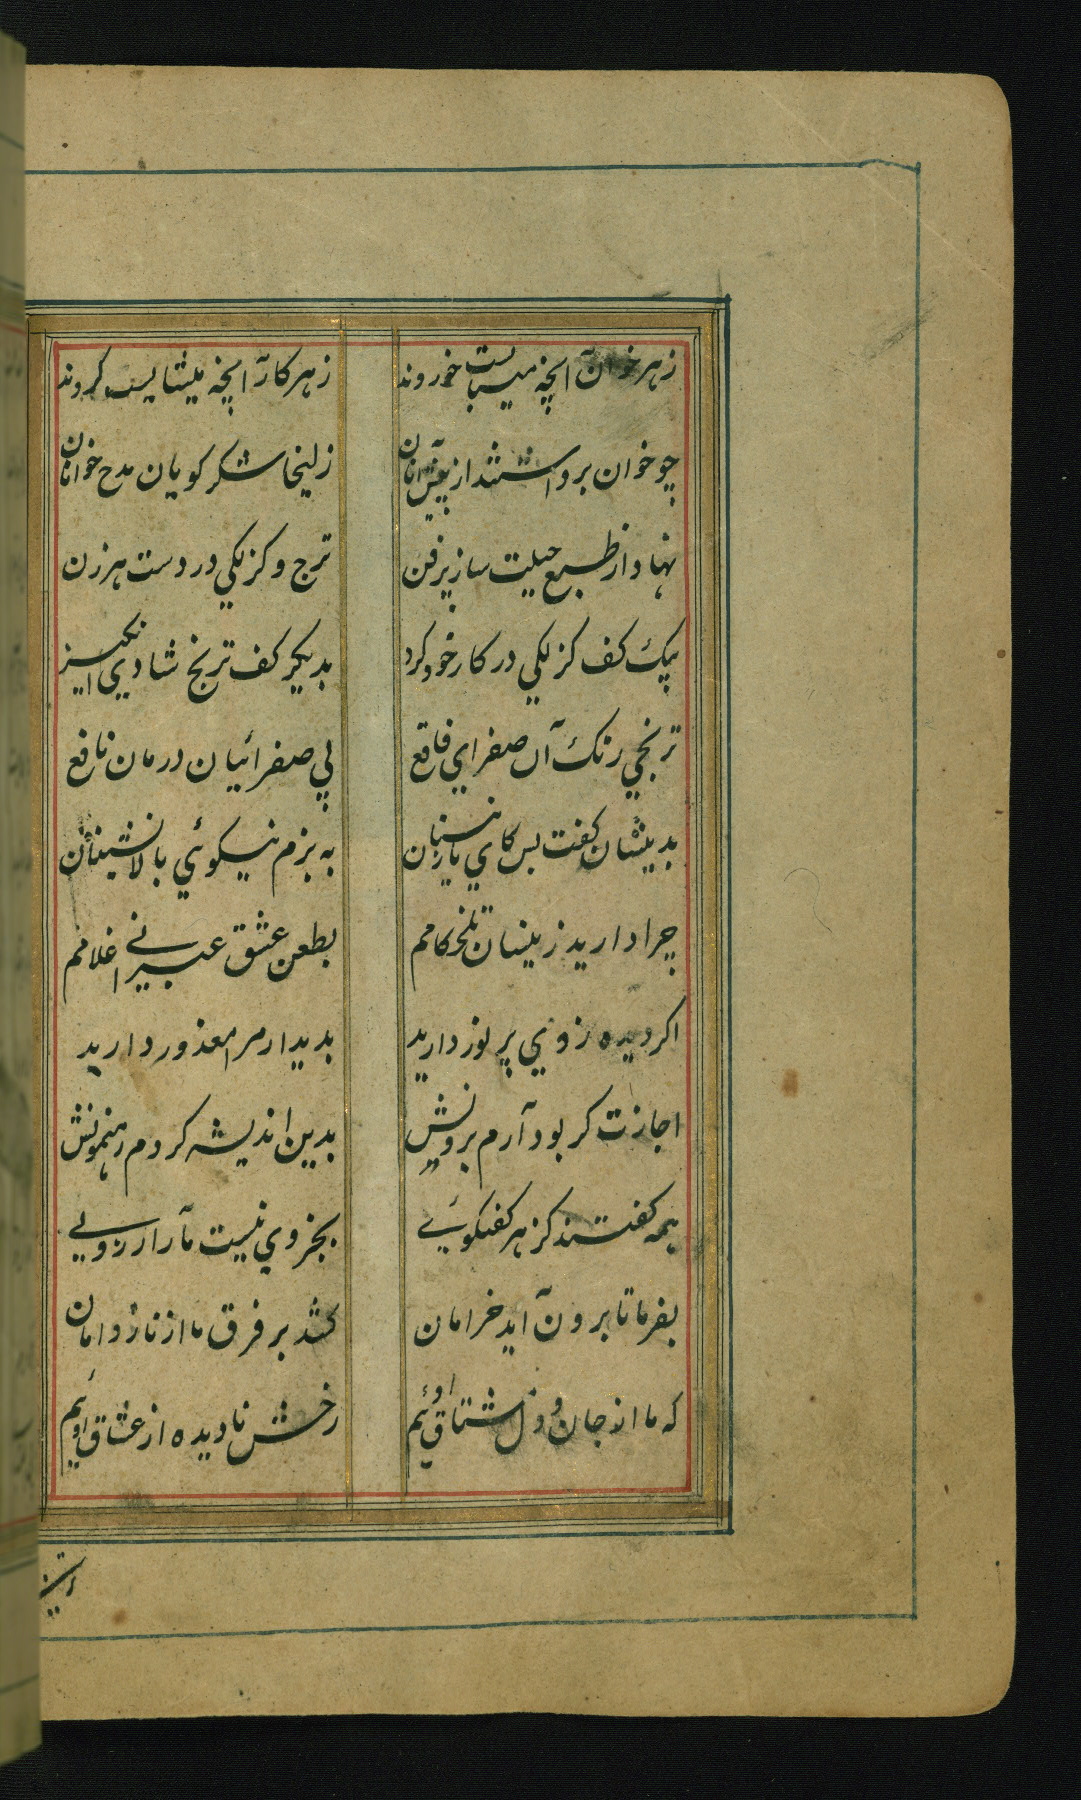 زهر خوان آنچه میبایست خوردند زهر کار آنچه میشایست کردند
چو خوان برداشتند از پیش آنان زلیخا شکر کویان مدح خوانان
نهاد از طبع حیلت ساز پرفن ترنج و کزلکی در دست هر زن
بیک کف کزلکی در کار خود کرد بدیکر کف ترنج شادی انکیز
ترنجی رنک آن صفرای فاقع پی صفرائیان درمان نافع
بدیشان کفت پس کای نازنینان به بزم نیکوئی بالانشینان
چرا دارید زینسان تلخ کامم بطعن عشق عبرانی غلامم
اکر دیده ز وی پر نور دارید بدیدارم مرا معذور دارید
اجازت کر بود آرم برونش بدین اندیشه کردم رهنمونش
همه کفتند کز هر کفتکویی بجز وی نیست ما را آرزویی
بفرما تا برون آید خرامان کشد بر فرق ما از ناز دامان
که ما از جان و دل مشتاق اوئیم رخش نادیده از عشاق اوئیم